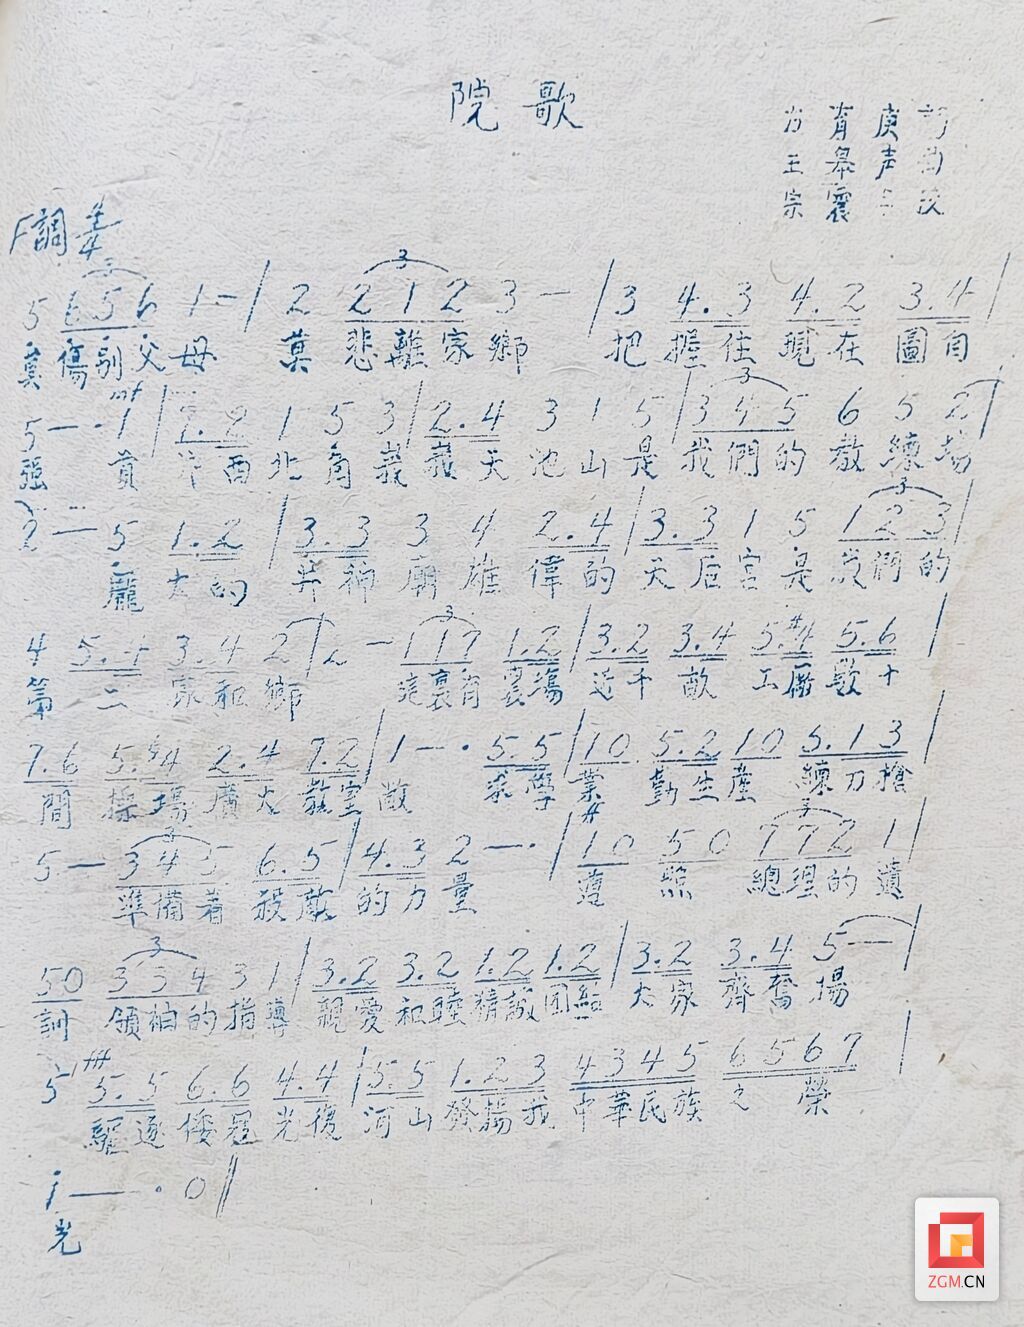 院歌
庚声
肖皋震
王宗
F調 4/4
5 6 5 6 1 — | 2 2 1 2 3 — | 3 4. 3 4. 2 3. 4 |
莫傷別父母 莫悲離家鄉 把握住現在圖自
5 — · 1 | 7. 2 1 5 3 | 2. 4 3 1 5 | 3 4 5 6 5 2 |
強 mf 西北 峩峩天池山是我們的教練場
2 — 5 1. 2 | 3. 3 3 4 2. 4 | 3. 3 1 5 1 2 3 |
龐大的 神廟雄偉的天后宮是我們的
4 5. 4 3. 4 2 | 2 — 1 1 7 1. 2 | 3. 2 3. 4 5. #4 5. 6 |
第二家和鄉 這裏有 塲 千畝工廠數十
7. 6 5. #4 2. 4 7. 2 | 1 — · 5. 5 | 1 0 5. 2 1 0 5. 1 3 |
間操塲廣大 室敞 求學業勤生產練刀槍
5 — 3 4 5 6. 5 | 4. 3 2 — · | 1 0 5 0 7 7 2 1 |
準備着殺敵的力量 遵照總理的遺
5 0 3 3 4 3 1 | 3. 2 3. 2 1. 2 1. 2 | 3. 2 3. 4 5 — |
訓領袖的指導親愛和睦精誠团結大家齊奮揚
5 fff 5. 5 6. 6 4. 4 | 5. 5 1. 2 3 4 3 4 5 6 5 6 7 |
驅逐倭寇光復河山發揚我中華民族之榮
i — · 0 ‖
光
ZGM.CN